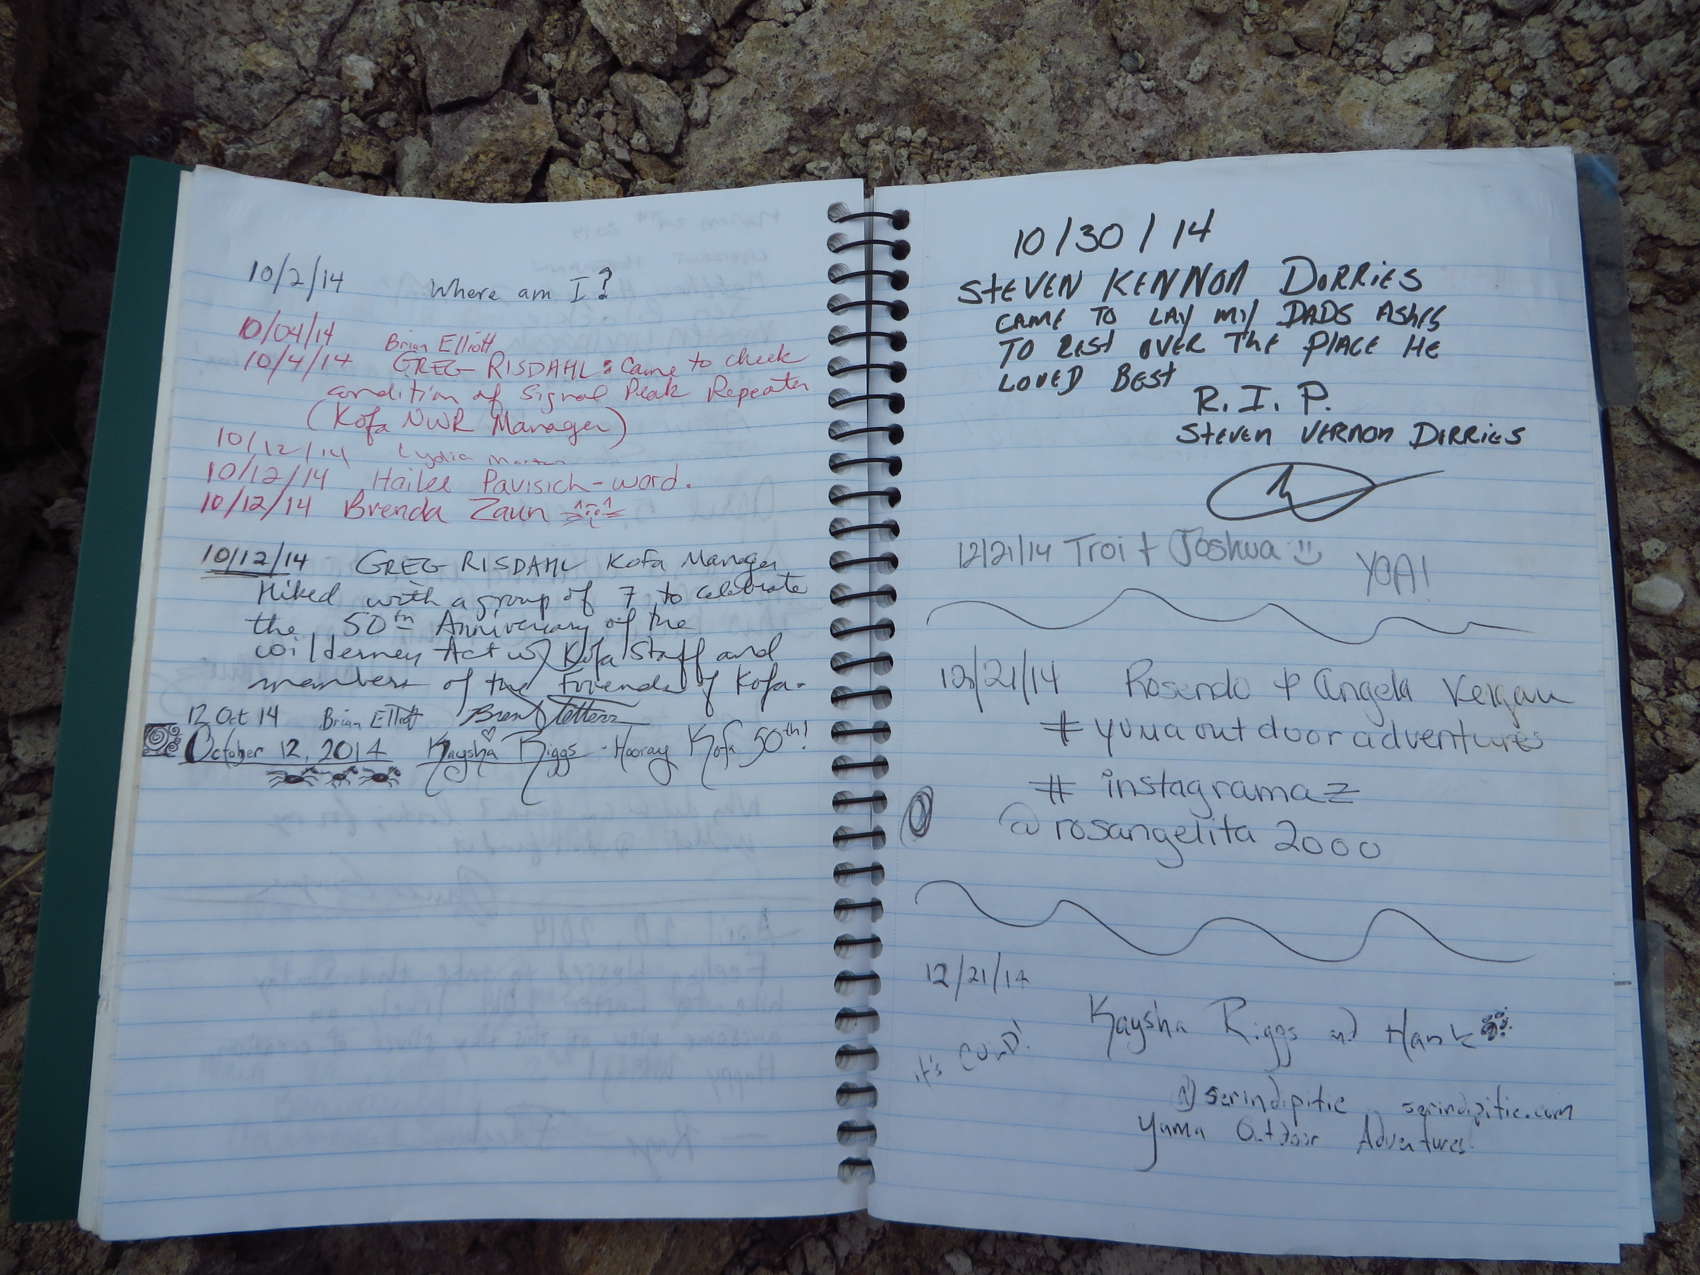 10/2/14 Where am I?
10/04/14 Brian Elliott
10/4/14 GREG RISDAHL: Came to check
condition of Signal Peak Repeater
(Kofa NWR Manager)
10/12/14 Lydia
10/12/14 Hailee Pavisich-word.
10/12/14 Brenda Zaun
10/12/14 GREG RISDAHL Kofa Manager
Hiked with a group of 7 to celebrate
the 50th Anniversary of the
Wilderness Act w/ Kofa Staff and
members of the Friends of Kofa.
12 Oct 14 Brian Elliott
October 12, 2014 Kaysha Riggs - Hooray Kofa 50th!
10/30/14
STEVEN KENNON DORRIES
CAME TO LAY MY DADS ASHES
TO REST OVER THE PLACE HE
LOVED BEST
R.I.P.
STEVEN VERNON DORRIES
12/21/14 Troi + Joshua YAA!
12/21/14 Rosendo & Angela
# yumaoutdooradventures
# instagramaz
@rosangelita2000
12/21/14
Kaysha Riggs and Hank
it's
@serindipitie serindipitie.com
Yuma Outdoor Adventures